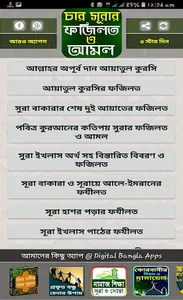 12:06 am
চার সূরার
ফজিলত
ও
আমল
আরও অ্যাপস
৫ স্টার দিন
আল্লাহর অপূর্ব দান আয়াতুল কুরসি
আয়াতুল কুরসির ফজিলত
সুরা বাকারার শেষ দুই আয়াতের ফজিলত
পবিত্র কুরআনের কতিপয় সুরার ফজিলত
ও আমল
সুরা ইখলাস অর্থ সহ বিস্তারিত বিবরণ ও
ফজিলত
সুরা বাকারা ও সুরায়ে আলে-ইমরানের
ফযীলত
সুরা হাশর পড়ার ফযীলত
সূরা ইখলাস পাঠের ফযীলত
আমাদের কিছু অ্যাপ @ Digital Bangla Apps
প্রকৃত বন্ধু
চেনার উপায়
নামাজ শিক্ষা
সূরা ও দোয়া
কোরবানীর
মাসায়েল